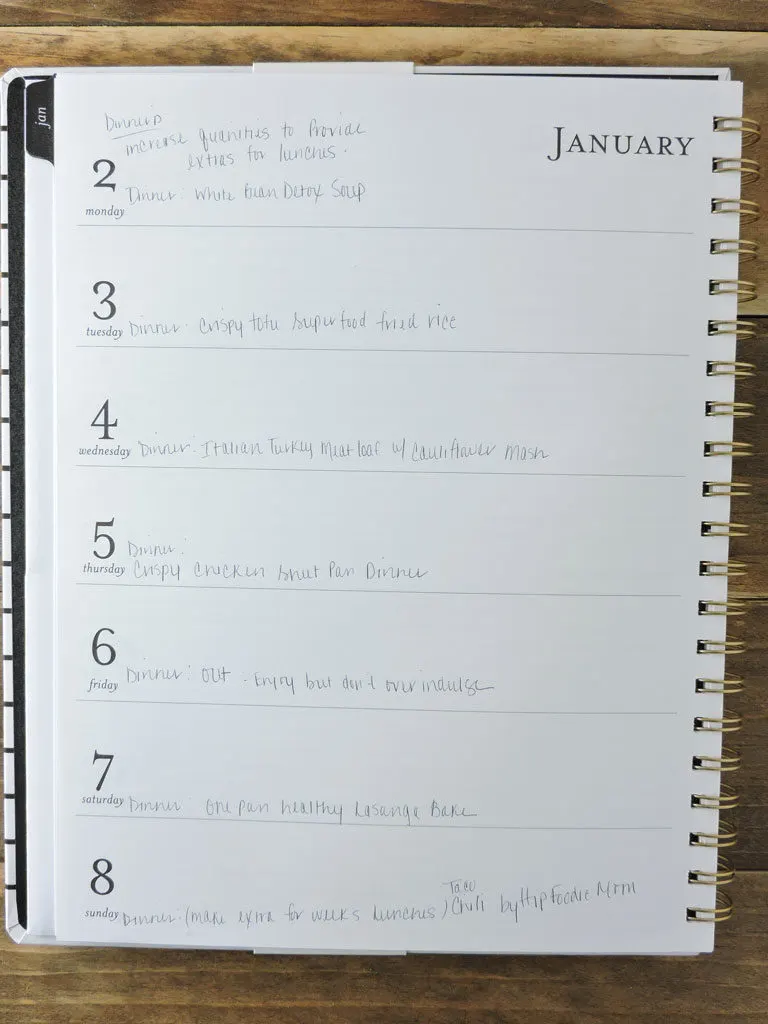 jan
JANUARY
Dinner's
increase quanities to Provide
extras for lunches.
2
monday
Dinner: White Bean Detox Soup
3
tuesday
Dinner: Crispy tofu superfood fried rice
4
wednesday
Dinner: Italian Turkey Meatloaf w/ Cauliflower Mash
5
thursday
Dinner:
Crispy Chicken Sheet Pan Dinner
6
friday
Dinner: out - Enjoy but don't over indulge
7
saturday
Dinner: One pan healthy Lasanga Bake
8
sunday
Dinner: (make extra for weeks lunches) Taco Chili by Hip Foodie Mom